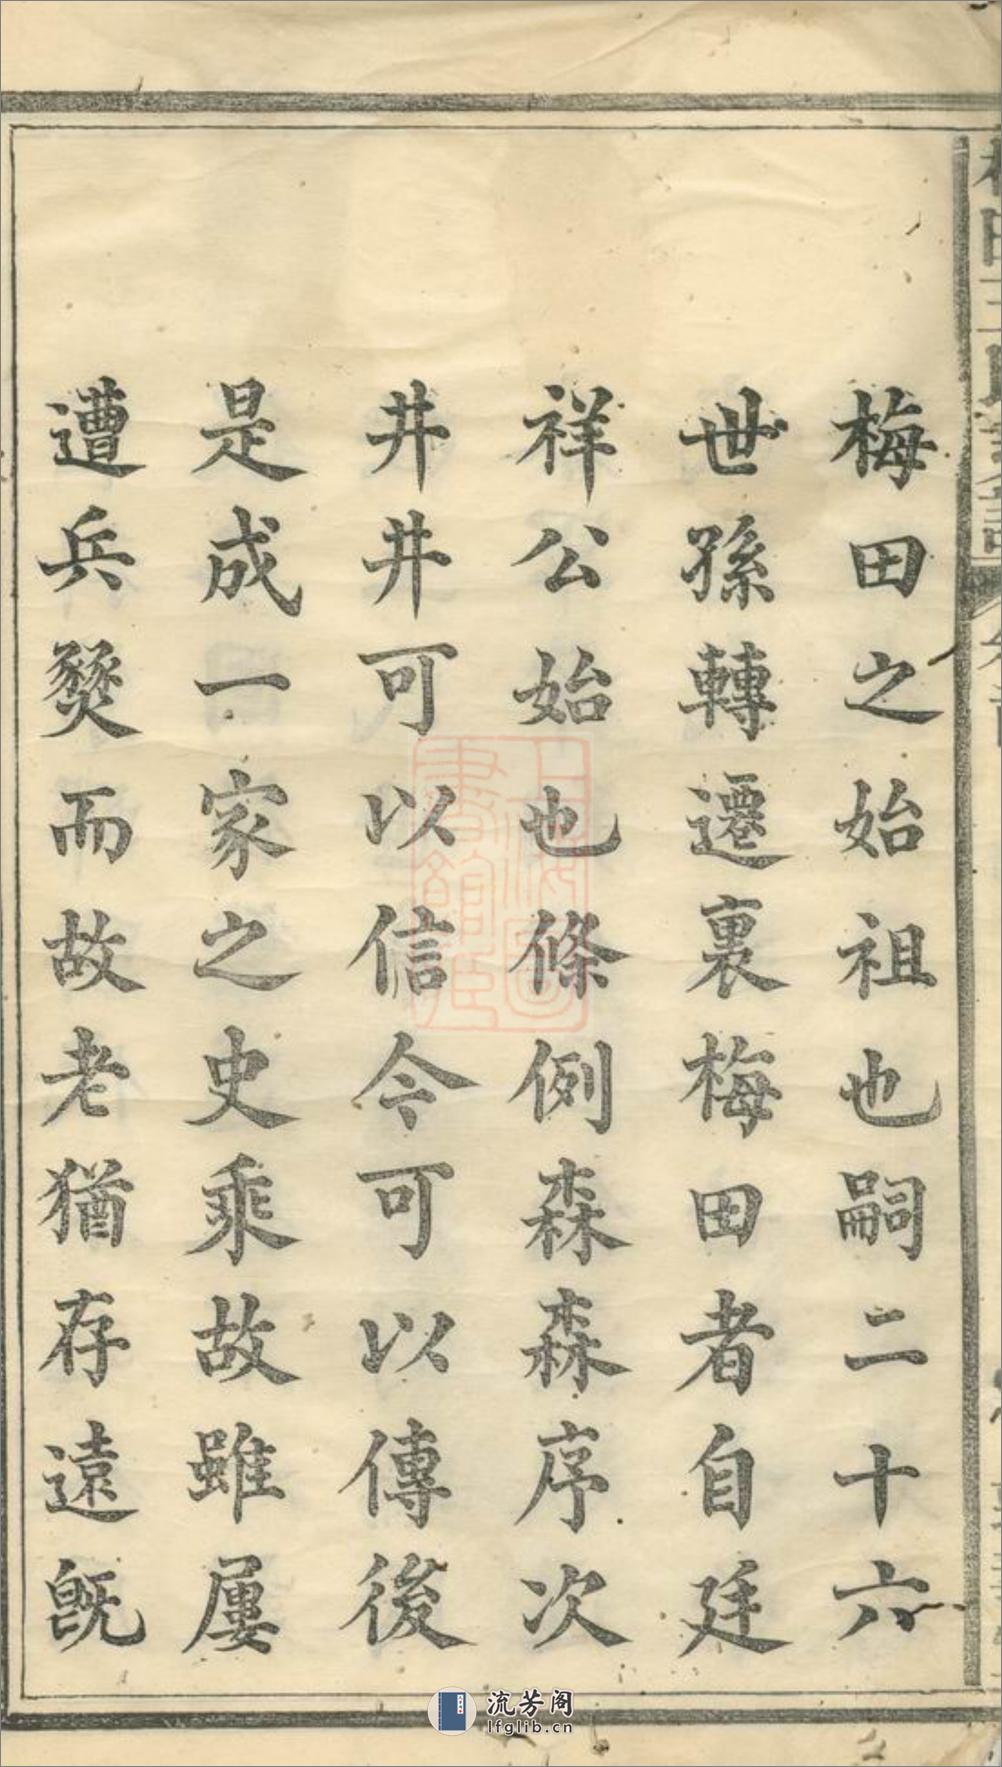 梅田之始祖也嗣二十六
世孫轉遷裏梅田者自廷
祥公始也條例森森序次
井井可以信今可以傳後
是成一家之史乘故雖屢
遭兵燹而故老猶存遠旣
流芳阁
lfglib.cn